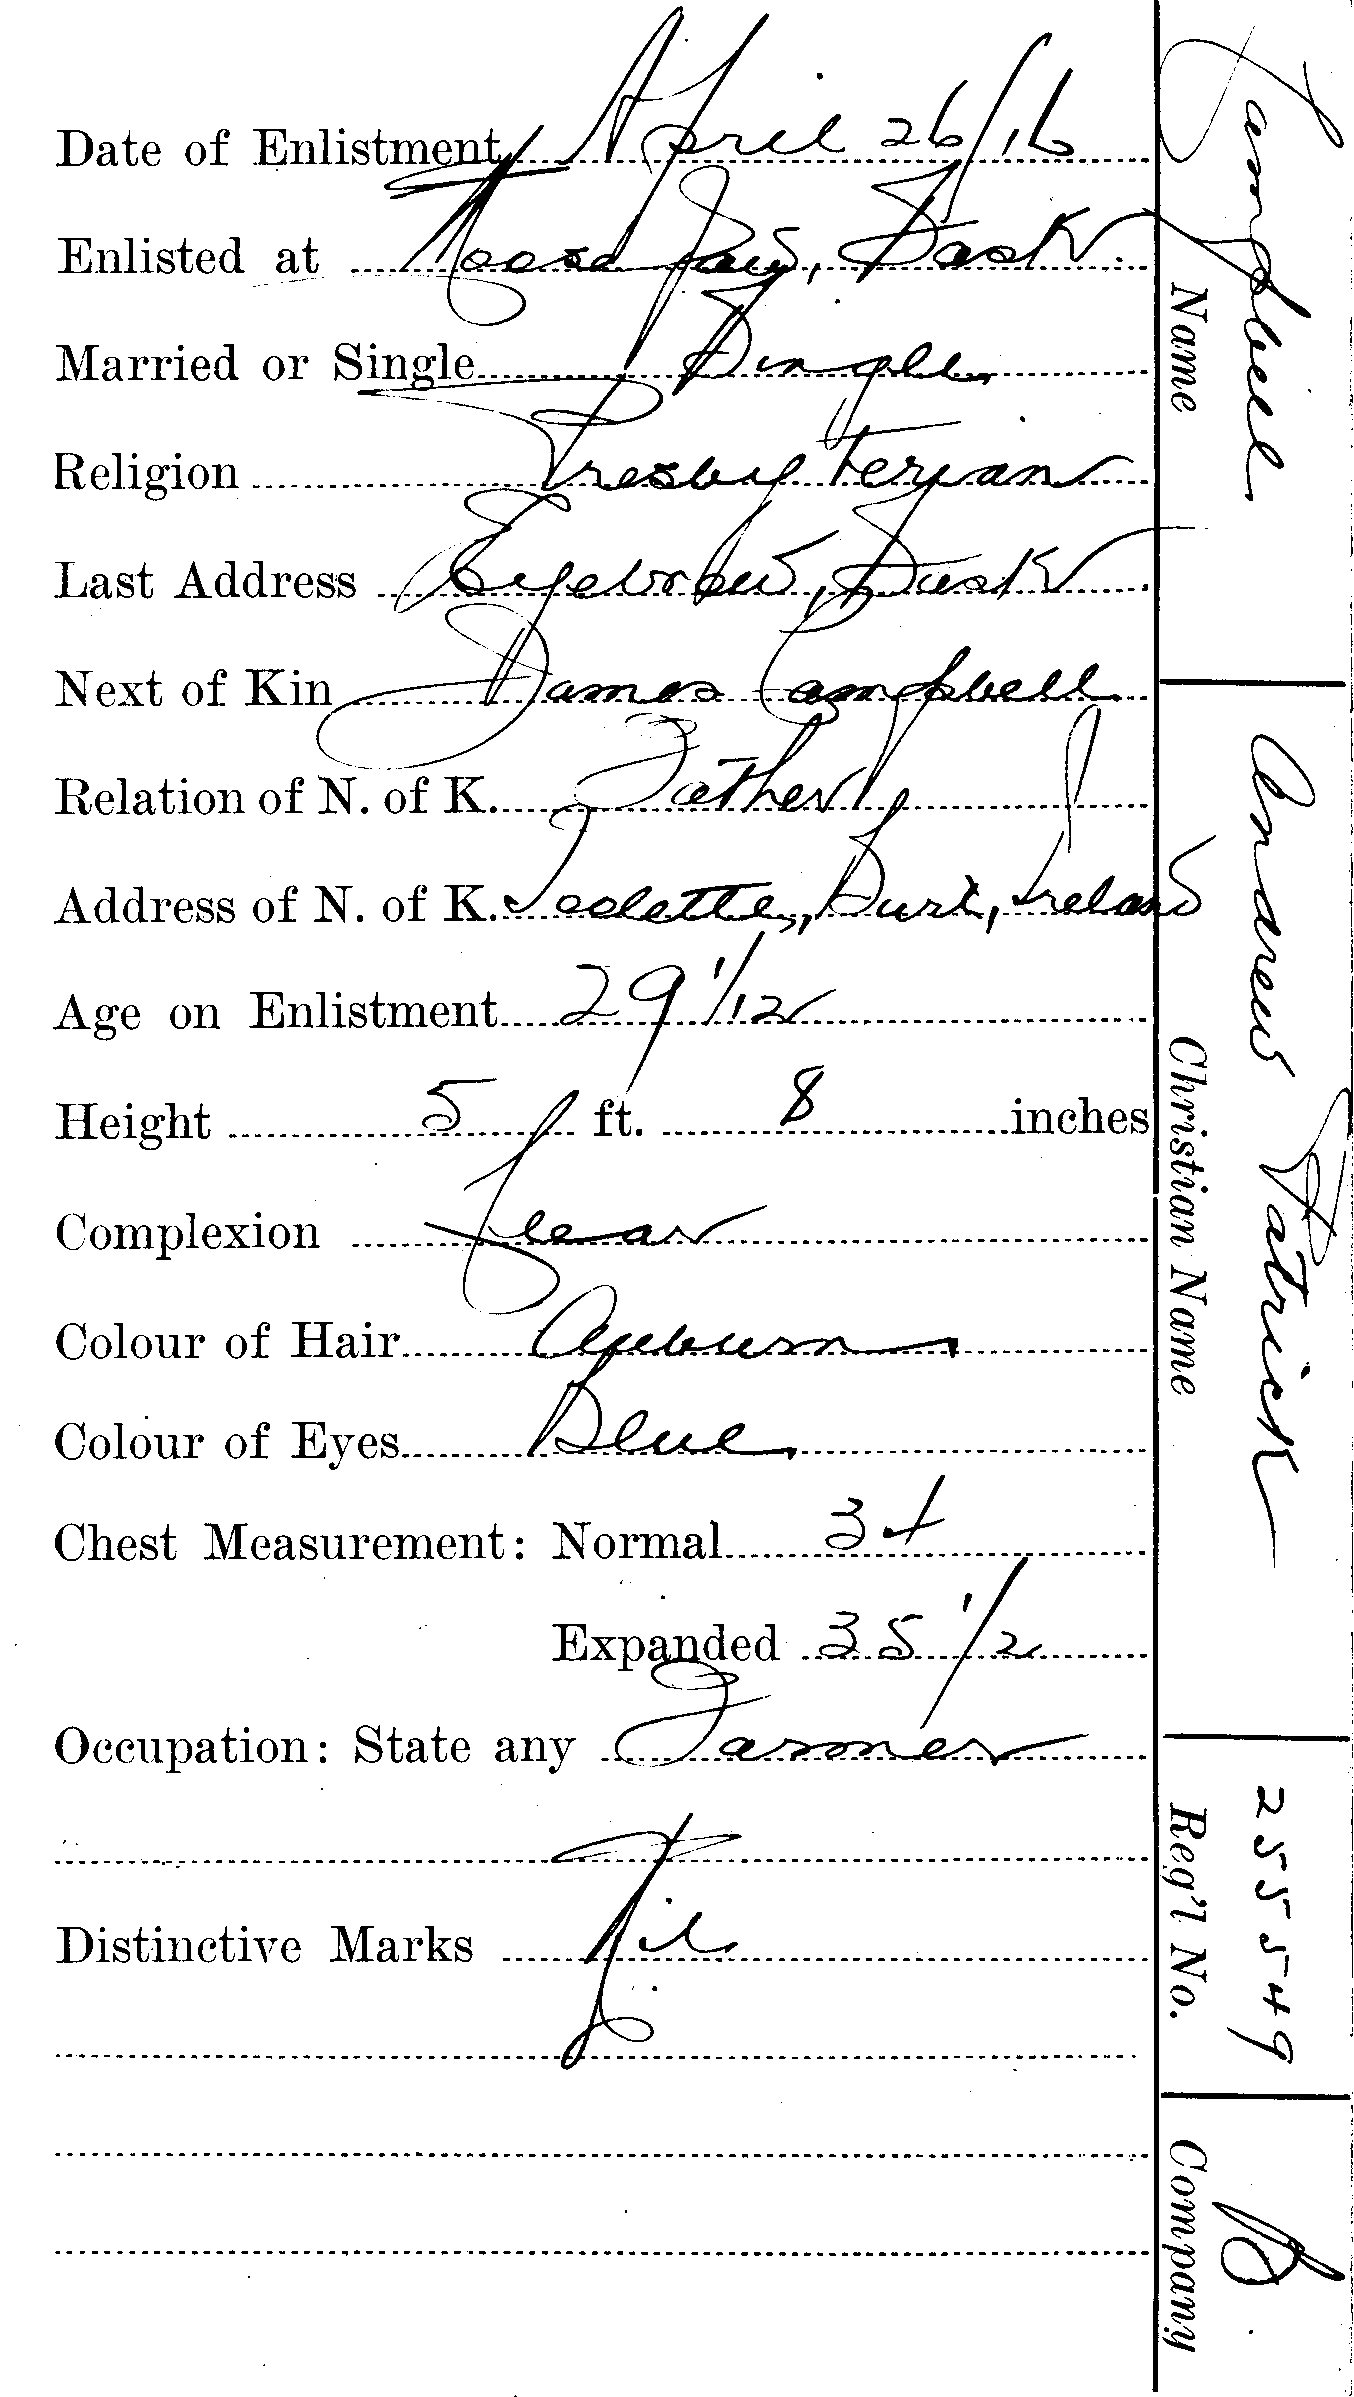 Date of Enlistment April 26/16
Enlisted at Moose Jaw, Sask.
Married or Single Single
Religion Presbyterian
Last Address Eyebrow, Sask.
Next of Kin James Campbell
Relation of N. of K. Father
Address of N. of K. Burt, Ireland
Age on Enlistment 29 1/12
Height 5 ft. 8 inches
Complexion Clear
Colour of Hair Auburn
Colour of Eyes Blue
Chest Measurement: Normal 34
Expanded 35 1/2
Occupation: State any Farmer
Distinctive Marks Nil
Campbell
Name
Andrew Patrick
Christian Name
255549
Reg'l No.
B
Company